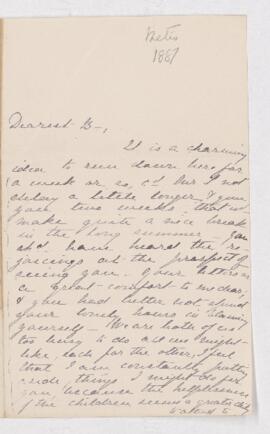 Metis
1887
Dearest B-,
It is a charming
idea to run down here for
a week or so, &
delay a little longer &
your two weeks that w
make quite a nice break
in the long summer. You
shd. have heard the re-
joicings at the prospect of
seeing you. Your letters are
a great comfort to me dear,
& you had better not spend
your lonely hours in blaming
yourself. We are both of us
too busy to do all we might
like, each for the other, I feel
that I am constantly putting
aside things I might do for
you because the helplessness
of the children seems a greater duty
to attend to